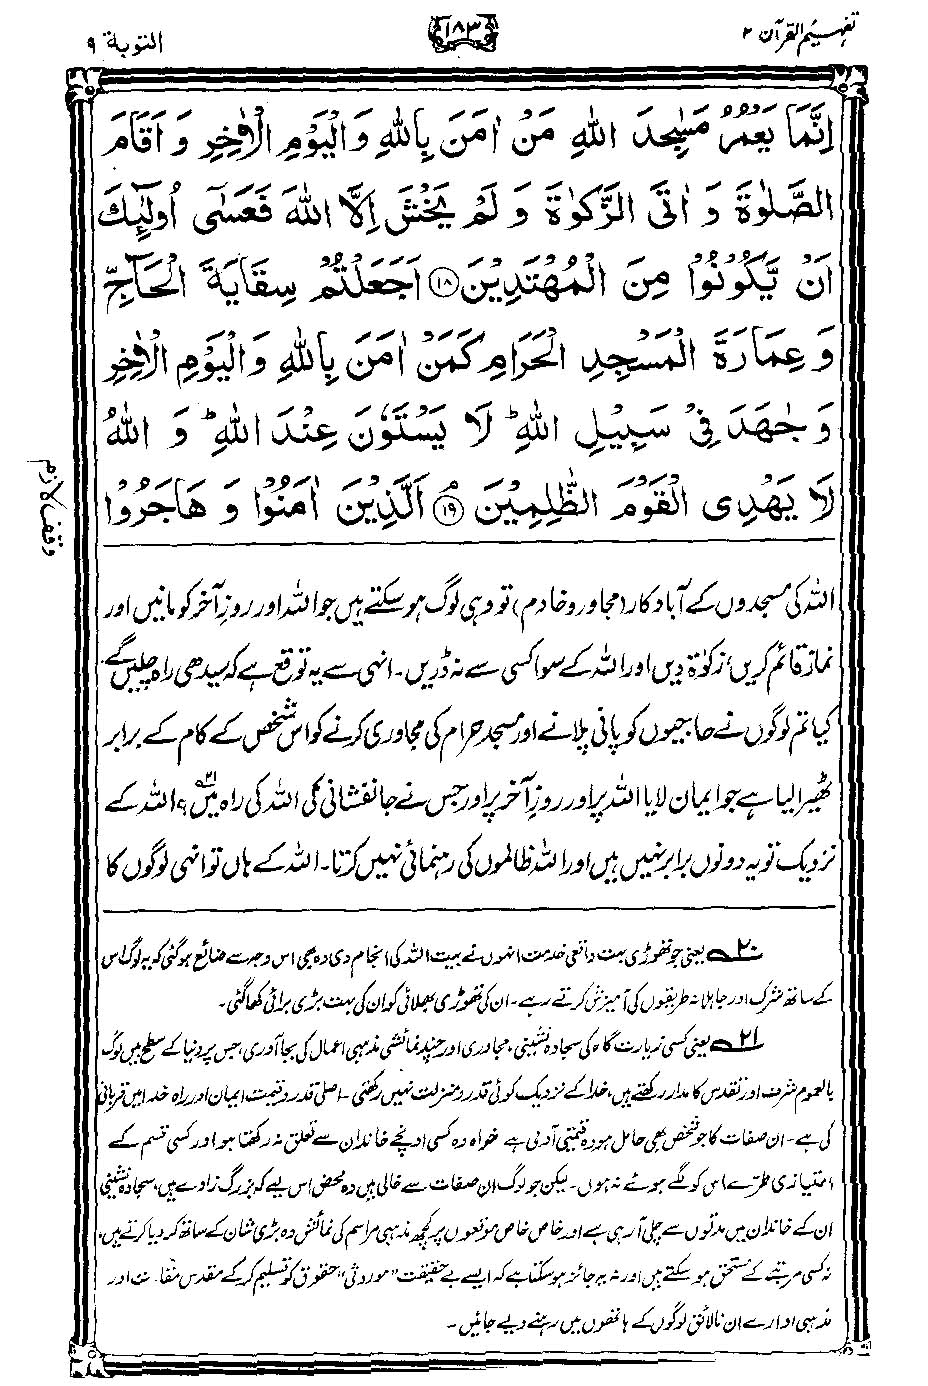 تفہیم القرآن ۲
۱۸۳
التوبة ۹
اِنَّمَا يَعْمُرُ مَسٰجِدَ اللّٰهِ مَنْ اٰمَنَ بِاللّٰهِ وَالْيَوْمِ الْاٰخِرِ وَ اَقَامَ
الصَّلٰوةَ وَ اٰتَى الزَّكٰوةَ وَ لَمْ يَخْشَ اِلَّا اللّٰهَ فَعَسٰٓى اُولٰٓئِكَ
اَنْ يَّكُوْنُوْا مِنَ الْمُهْتَدِيْنَ ۱۸ اَجَعَلْتُمْ سِقَايَةَ الْحَآجِّ
وَ عِمَارَةَ الْمَسْجِدِ الْحَرَامِ كَمَنْ اٰمَنَ بِاللّٰهِ وَالْيَوْمِ الْاٰخِرِ
وَ جٰهَدَ فِيْ سَبِيْلِ اللّٰهِ ؕ لَا يَسْتَوٗنَ عِنْدَ اللّٰهِ ؕ وَ اللّٰهُ
لَا يَهْدِى الْقَوْمَ الظّٰلِمِيْنَ ۱۹ۘ اَلَّذِيْنَ اٰمَنُوْا وَ هَاجَرُوْا
وقف لازم
اللہ کی مسجدوں کے آباد کار (مجاور و خادم) تو وہی لوگ ہو سکتے ہیں جو اللہ اور روزِ آخر کو مانیں اور
نماز قائم کریں، زکوٰۃ دیں اور اللہ کے سوا کسی سے نہ ڈریں۔ انہی سے یہ توقع ہے کہ سیدھی راہ چلیں گے۔
کیا تم لوگوں نے حاجیوں کو پانی پلانے اور مسجد حرام کی مجاوری کرنے کو اس شخص کے کام کے برابر
ٹھیرا لیا ہے جو ایمان لایا اللہ پر اور روزِ آخر پر اور جس نے جانفشانی کی اللہ کی راہ میں۲۱؟ اللہ کے
نزدیک تو یہ دونوں برابر نہیں ہیں اور اللہ ظالموں کی رہنمائی نہیں کرتا۔ اللہ کے ہاں تو انہی لوگوں کا
۲۰ یعنی جو تھوڑی بہت واقعی خدمت انہوں نے بیت اللہ کی انجام دی وہ بھی اس وجہ سے ضائع ہو گئی کہ یہ لوگ اس
کے ساتھ شرک اور جاہلانہ طریقوں کی آمیزش کرتے رہے۔ ان کی تھوڑی بھلائی کو ان کی بہت بڑی برائی کھا گئی۔
۲۱ یعنی کسی زیارت گاہ کی سجادہ نشینی، مجاوری اور چند نمائشی مذہبی اعمال کی بجا آوری، جس پر دنیا کے سطح بیں لوگ
بالعموم شرف اور تقدس کا مدار رکھتے ہیں، خدا کے نزدیک کوئی قدر و منزلت نہیں رکھتی۔ اصلی قدر و قیمت ایمان اور راہ خدا میں قربانی
کی ہے۔ ان صفات کا جو شخص بھی حامل ہو وہ قیمتی آدمی ہے خواہ وہ کسی اونچے خاندان سے تعلق نہ رکھتا ہو اور کسی قسم کے
امتیازی طرے اس کو لگے ہوئے نہ ہوں۔ لیکن جو لوگ ان صفات سے خالی ہیں وہ محض اس لیے کہ بزرگ زادے ہیں، سجادہ نشینی
ان کے خاندان میں مدتوں سے چلی آ رہی ہے اور خاص خاص موقعوں پر کچھ مذہبی مراسم کی نمائش وہ بڑی شان کے ساتھ کر دیا کرتے ہیں،
نہ کسی مرتبے کے مستحق ہو سکتے ہیں اور نہ یہ جائز ہو سکتا ہے کہ ایسے بے حقیقت "موروثی" حقوق کو تسلیم کر کے مقدس مقامات اور
مذہبی ادارے ان نالائق لوگوں کے ہاتھوں میں رہنے دیے جائیں۔